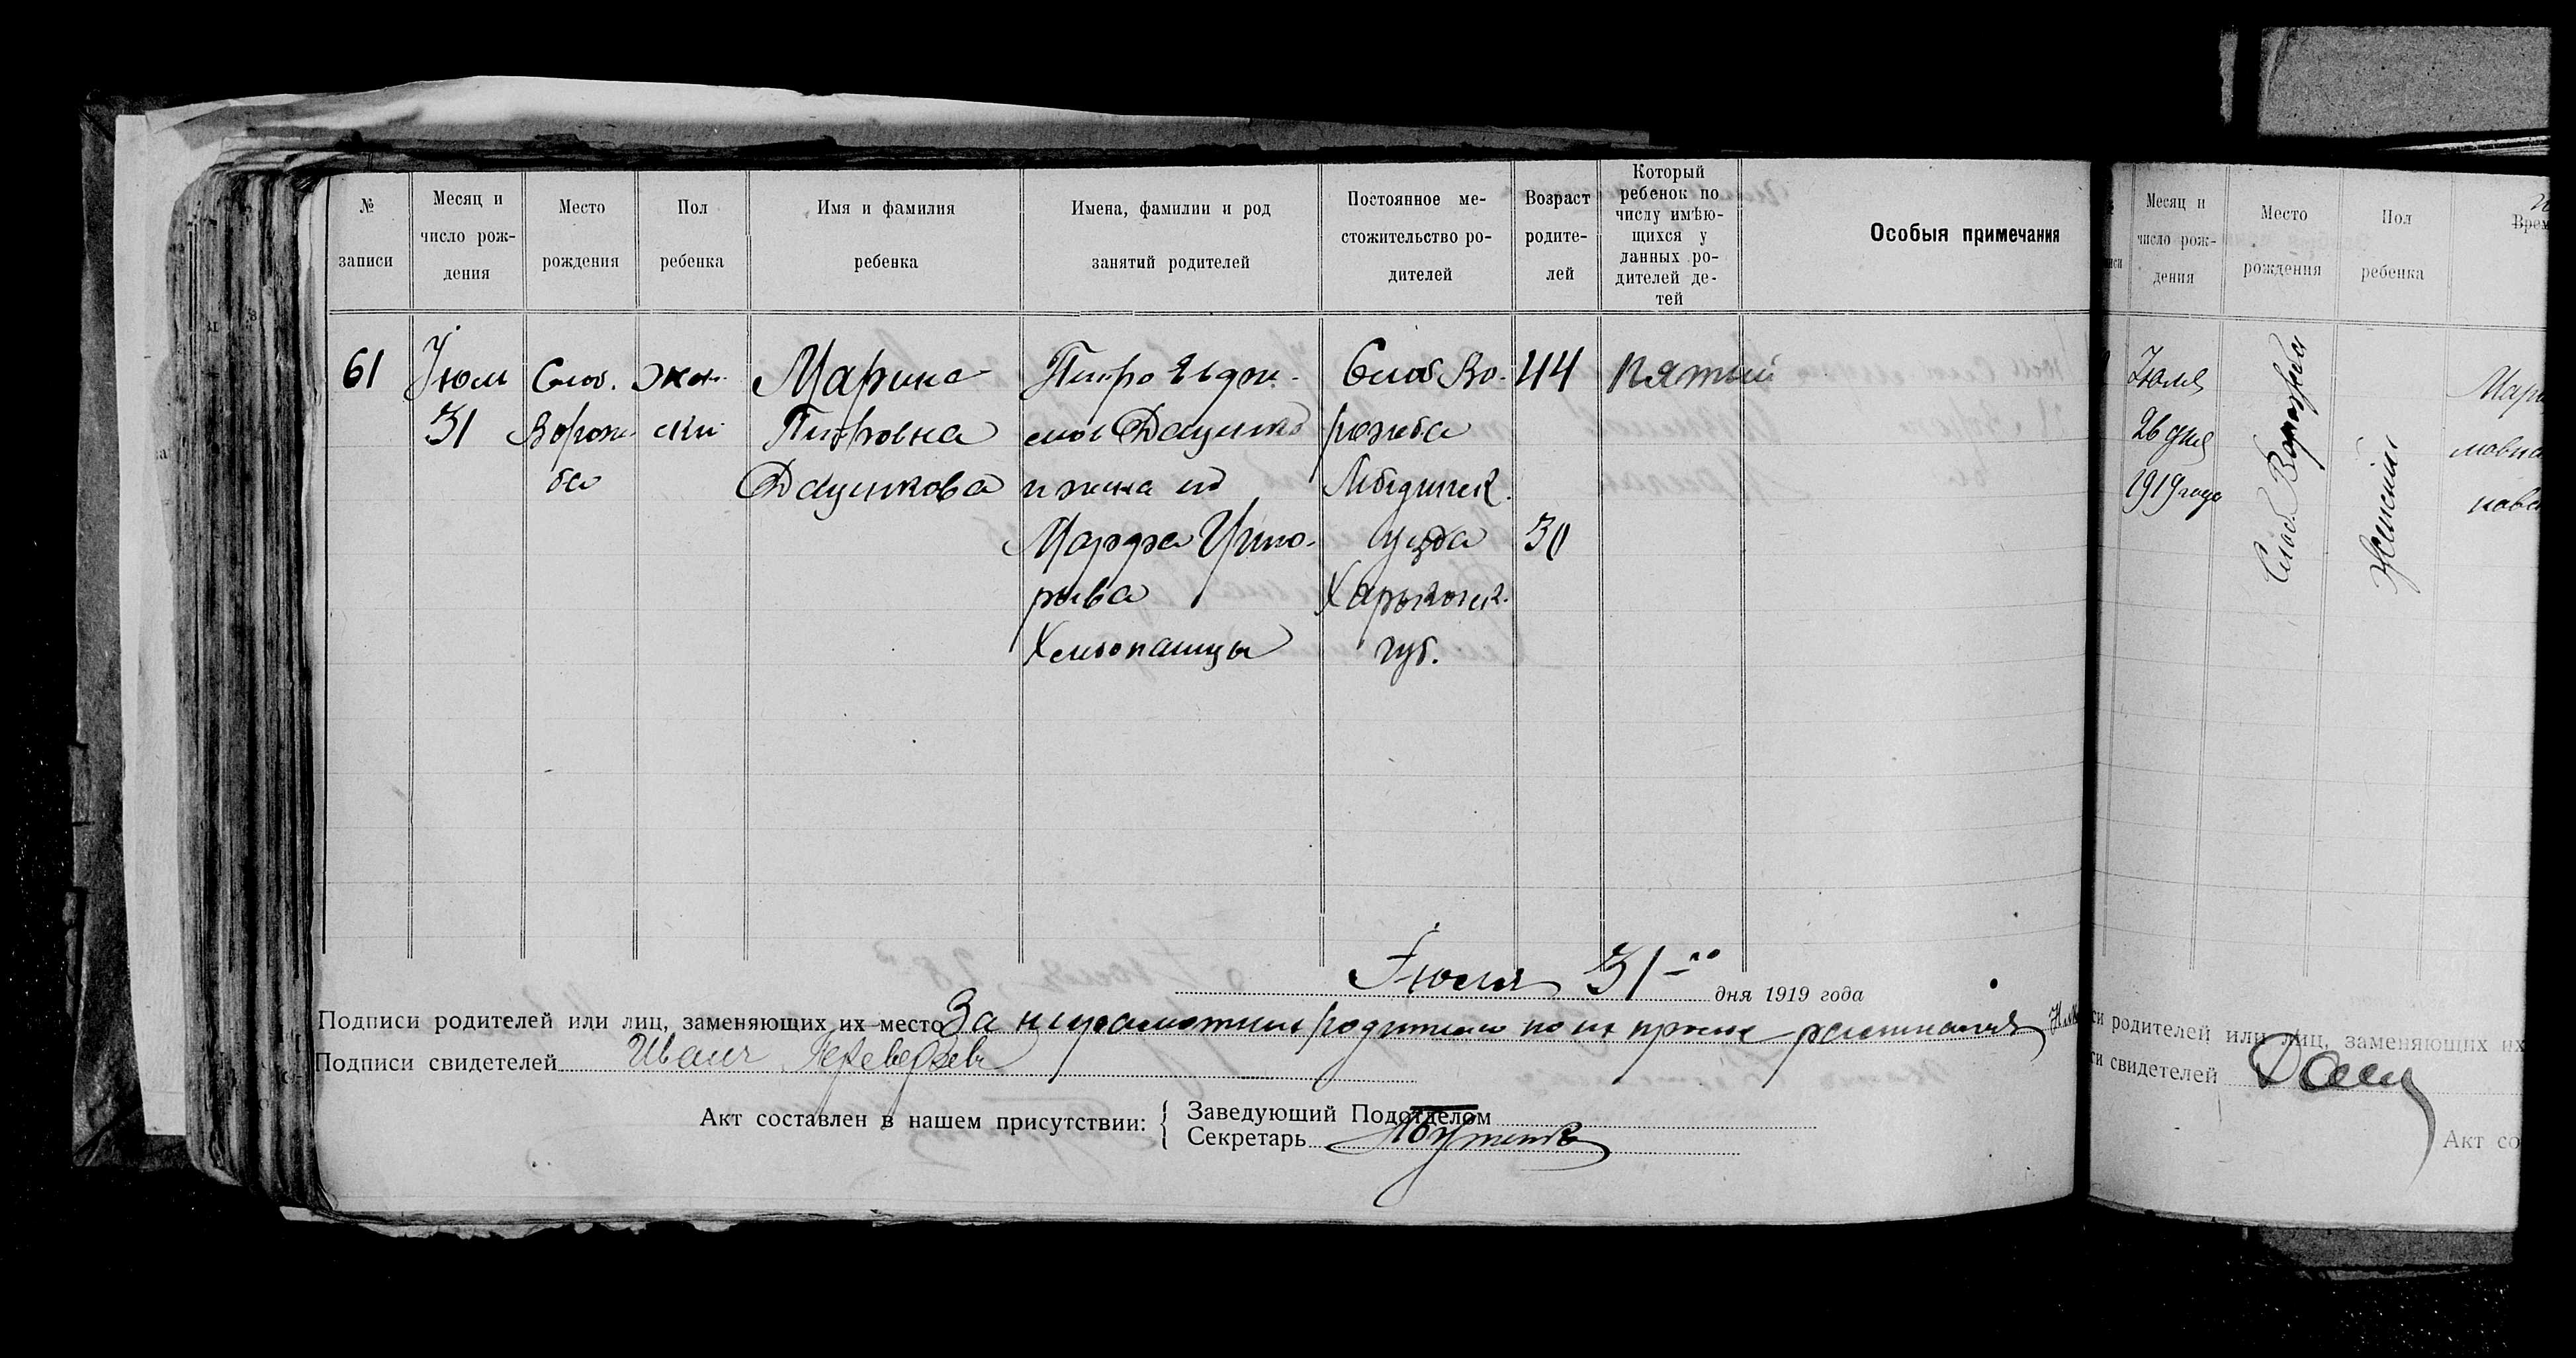 № записи
Месяц и число рож-дения
Место рождения
Пол ребенка
Имя и фамилия ребенка
Имена, фамилии и род занятий родителей
Постоянное ме-стожительство ро-дителей
Возраст родите-лей
Который ребенок по числу имѣю-щихся у данных ро-дителей де-тей
Особыя примечания
61
Июля
31
Слоб.
Ворож
ба
жен
ский
Марина
Петровна
Дацикова
Петро
Дацико
и жена его
Марфа Григо-
рьева
Хлебопашцы
Слоб Во-
рожба
Лебединск.
уезда
Харьковск.
губ.
44
30
пятый
Июля 31-го дня 1919 года
Подписи родителей или лиц, заменяющих их место За неграмотных родителей по их просьбе
Подписи свидетелей Иван
Акт составлен в нашем присутствии:
Заведующий Подотделом
Секретарь
Месяц и
число рож-
дения
Место
рождения
Пол
ребенка
Июля
26 дня
1919 года
Слоб. Ворожба
Женский
Мари
мовна
ковс
си родителей или лиц, заменяющих их
си свидетелей
Акт со